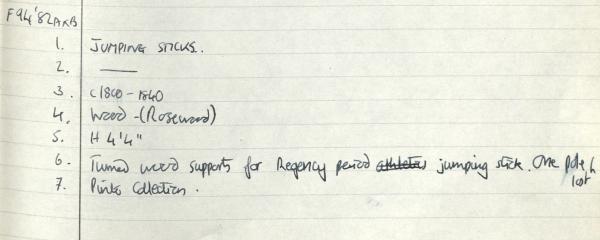 F94'82A&B
1. JUMPING STICKS.
2. ——
3. c1800-1840
4. Wood - (Rosewood)
5. H 4'4"
6. Turned wood supports for Regency period athletes jumping stick. One pole
lost
7. Pinto Collection.